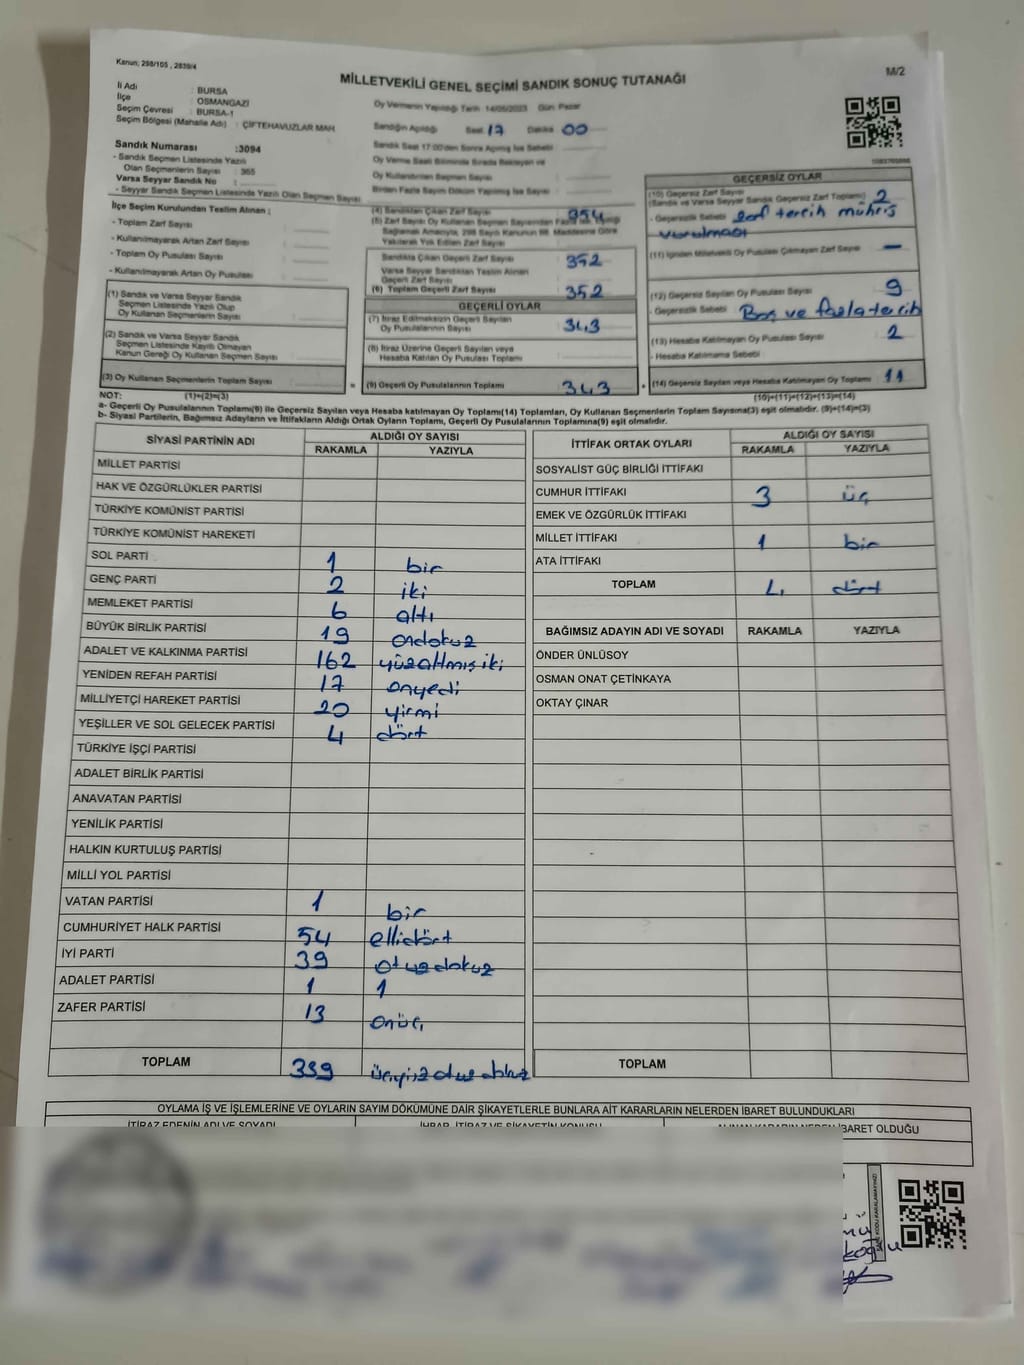 Kanun: 298/105 , 2839/4
MİLLETVEKİLİ GENEL SEÇİMİ SANDIK SONUÇ TUTANAĞI
M/2
İl Adı : BURSA
İlçe : OSMANGAZİ
Seçim Çevresi : BURSA-1
Seçim Bölgesi (Mahalle Adı) : ÇİFTEHAVUZLAR MAH.
Sandık Numarası :3094
- Sandık Seçmen Listesinde Yazılı
Olan Seçmenlerin Sayısı : 365
Varsa Seyyar Sandık No :
- Seyyar Sandık Seçmen Listesinde Yazılı Olan Seçmen Sayısı
İlçe Seçim Kurulundan Teslim Alınan ;
- Toplam Zarf Sayısı :
- Kullanılmayarak Artan Zarf Sayısı :
- Toplam Oy Pusulası Sayısı :
- Kullanılmayarak Artan Oy Pusulası :
(1) Sandık ve Varsa Seyyar Sandık
Seçmen Listesinde Yazılı Olup
Oy Kullanan Seçmenlerin Sayısı :
(2) Sandık ve Varsa Seyyar Sandık
Seçmen Listesinde Kayıtlı Olmayan
Kanun Gereği Oy Kullanan Seçmen Sayısı :
(3) Oy Kullanan Seçmenlerin Toplam Sayısı :
Oy Vermenin Yapıldığı Tarih: 14/05/2023 Gün: Pazar
Sandığın Açıldığı Saat 17 Dakika 00
Sandık Saat 17:00'den Sonra Açılmış İse Sebebi :
Oy Verme Saati Bitiminde Sırada Bekleyen ve
Oy Kullandırılan Seçmen Sayısı :
Birden Fazla Sayım Döküm Yapılmış İse Sayısı :
(4) Sandıktan Çıkan Zarf Sayısı 354
(5) Zarf Sayısı Oy Kullanan Seçmen Sayısından Fazla İse, Eşitliği
Sağlamak Amacıyla, 298 Sayılı Kanunun 98. Maddesine Göre
Yakılarak Yok Edilen Zarf Sayısı :
Sandıkta Çıkan Geçerli Zarf Sayısı 352
Varsa Seyyar Sandıktan Teslim Alınan
Geçerli Zarf Sayısı
(6) Toplam Geçerli Zarf Sayısı 352
GEÇERLİ OYLAR
(7) İtiraz Edilmeksizin Geçerli Sayılan
Oy Pusulalarının Sayısı : 343
(8) İtiraz Üzerine Geçerli Sayılan veya
Hesaba Katılan Oy Pusulası Toplamı :
= (9) Geçerli Oy Pusulalarının Toplamı : 343
GEÇERSİZ OYLAR
(10) Geçersiz Zarf Sayısı
(Sandık ve Varsa Seyyar Sandık Geçersiz Zarf Toplamı) 2
- Geçersizlik Sebebi tercih mührü
vurulması
(11) İçinden Milletvekili Oy Pusulası Çıkmayan Zarf Sayısı : —
(12) Geçersiz Sayılan Oy Pusulası Sayısı 9
- Geçersizlik Sebebi Boş ve fazla tercih
(13) Hesaba Katılmayan Oy Pusulası Sayısı : 2
- Hesaba Katılmama Sebebi
+ (14) Geçersiz Sayılan veya Hesaba Katılmayan Oy Toplamı 11
NOT: (1)+(2)=(3) (10)+(11)+(12)+(13)=(14)
a- Geçerli Oy Pusulalarının Toplamı(9) ile Geçersiz Sayılan veya Hesaba katılmayan Oy Toplamı(14) Toplamları, Oy Kullanan Seçmenlerin Toplam Sayısına(3) eşit olmalıdır. (9)+(14)=(3)
b- Siyasi Partilerin, Bağımsız Adayların ve İttifakların Aldığı Ortak Oyların Toplamı, Geçerli Oy Pusulalarının Toplamına(9) eşit olmalıdır.
SİYASİ PARTİNİN ADI ALDIĞI OY SAYISI
RAKAMLA YAZIYLA
MİLLET PARTİSİ
HAK VE ÖZGÜRLÜKLER PARTİSİ
TÜRKİYE KOMÜNİST PARTİSİ
TÜRKİYE KOMÜNİST HAREKETİ
SOL PARTİ 1 bir
GENÇ PARTİ 2 iki
MEMLEKET PARTİSİ 6 altı
BÜYÜK BİRLİK PARTİSİ 19 ondokuz
ADALET VE KALKINMA PARTİSİ 162 yüzaltmışiki
YENİDEN REFAH PARTİSİ 17 onyedi
MİLLİYETÇİ HAREKET PARTİSİ 20 yirmi
YEŞİLLER VE SOL GELECEK PARTİSİ 4 dört
TÜRKİYE İŞÇİ PARTİSİ
ADALET BİRLİK PARTİSİ
ANAVATAN PARTİSİ
YENİLİK PARTİSİ
HALKIN KURTULUŞ PARTİSİ
MİLLİ YOL PARTİSİ
VATAN PARTİSİ 1 bir
CUMHURİYET HALK PARTİSİ 54 ellidört
İYİ PARTİ 39 otuzdokuz
ADALET PARTİSİ 1 1
ZAFER PARTİSİ 13 onüç
TOPLAM 339 üçyüzotuzdokuz
İTTİFAK ORTAK OYLARI ALDIĞI OY SAYISI
RAKAMLA YAZIYLA
SOSYALİST GÜÇ BİRLİĞİ İTTİFAKI
CUMHUR İTTİFAKI 3 üç
EMEK VE ÖZGÜRLÜK İTTİFAKI
MİLLET İTTİFAKI 1 bir
ATA İTTİFAKI
TOPLAM 4 dört
BAĞIMSIZ ADAYIN ADI VE SOYADI RAKAMLA YAZIYLA
ÖNDER ÜNLÜSOY
OSMAN ONAT ÇETİNKAYA
OKTAY ÇINAR
TOPLAM
OYLAMA İŞ VE İŞLEMLERİNE VE OYLARIN SAYIM DÖKÜMÜNE DAİR ŞİKAYETLERLE BUNLARA AİT KARARLARIN NELERDEN İBARET BULUNDUKLARI
İTİRAZ EDENİN ADI VE SOYADI İHBAR, İTİRAZ VE ŞİKAYETİN KONUSU ALINAN KARARIN NEDEN İBARET OLDUĞU